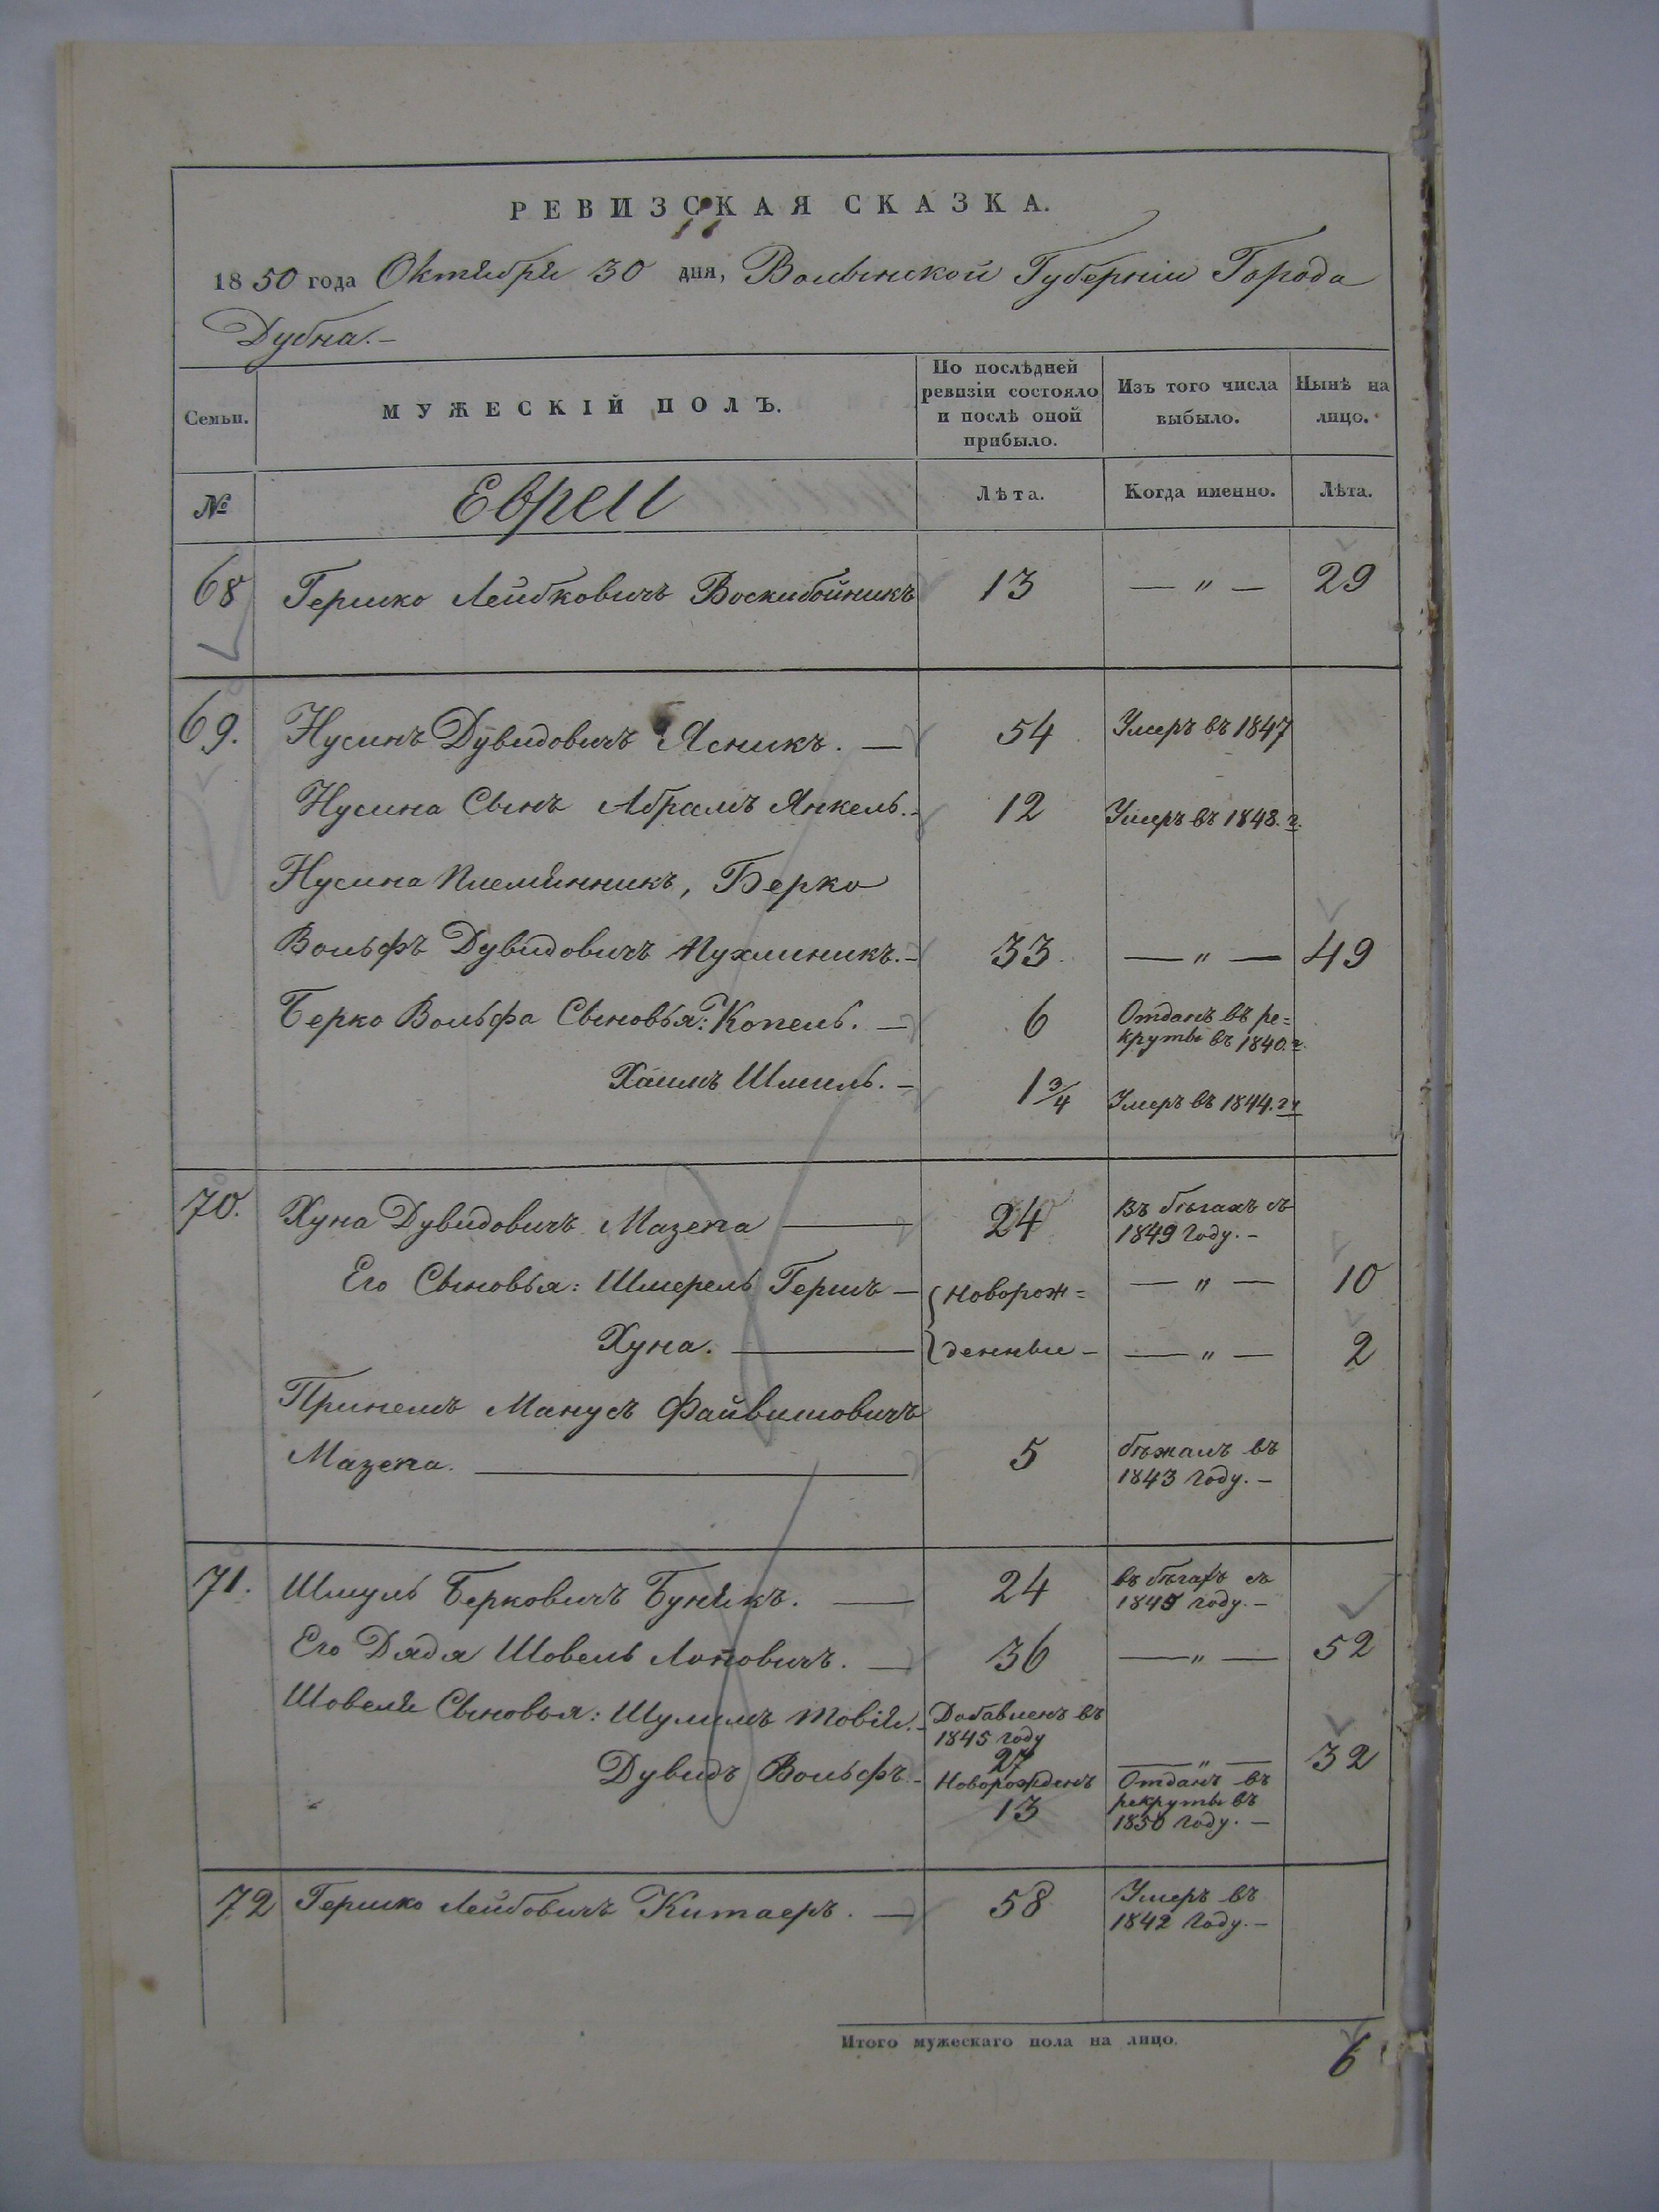 РЕВИЗСКАЯ СКАЗКА.
1850 года Октября 30 дня, Волынской Губерніи Города
Дубна.—
Семьи.
МУЖЕСКІЙ ПОЛЪ.
По послѣдней
ревизіи состояло
и послѣ оной
прибыло.
Изъ того числа
выбыло.
Нынѣ на
лицо.
№
Евреи
Лѣта.
Когда именно.
Лѣта.
68 Гершко Лейбковичъ Воскибойникъ 13 — „ — 29
69. Нусинъ Дувидовичъ Ясникъ. — 54 Умеръ въ 1847
Нусина Сынъ Абрамъ Янкель.- 12 Умеръ въ 1848. г.
Нусина Племянникъ, Берко
Вольфъ Дувидовичъ Пухлиникъ.- 33 — „ — 49
Берко Вольфа Сыновья: Копель. — 6 Отданъ въ ре=
круты въ 1840. г.
Хаимъ Шмиль. — 1 3/4 Умеръ въ 1844.
70. Хуна Дувидовичъ Мазепа — 24 Въ бѣгахъ съ
1849 году. —
Его Сыновья: Шмерель Гершъ — Новорож= — „ — 10
Хуна. — денные — — „ — 2
Принемъ Манусъ Файвишовичъ
Мазепа. — 5 бѣжалъ въ
1843 году. —
71. Шмуль Берковичъ Бунякъ. — 24 въ бѣгахъ съ
1845 году. —
Его Дядя Шовель Лоповичъ. — 36 — „ — 52
Шовеля Сыновья: Шулимъ Товій.- Добавленъ въ
1845 году
27 — „ — 32
Дувидъ Вольфъ.- Новорожденъ Отданъ въ
13 рекруты въ
1850 году. —
72 Гершко Лейбовичъ Китаеръ. — 58 Умеръ въ
1842 году. —
Итого мужескаго пола на лицо.
6